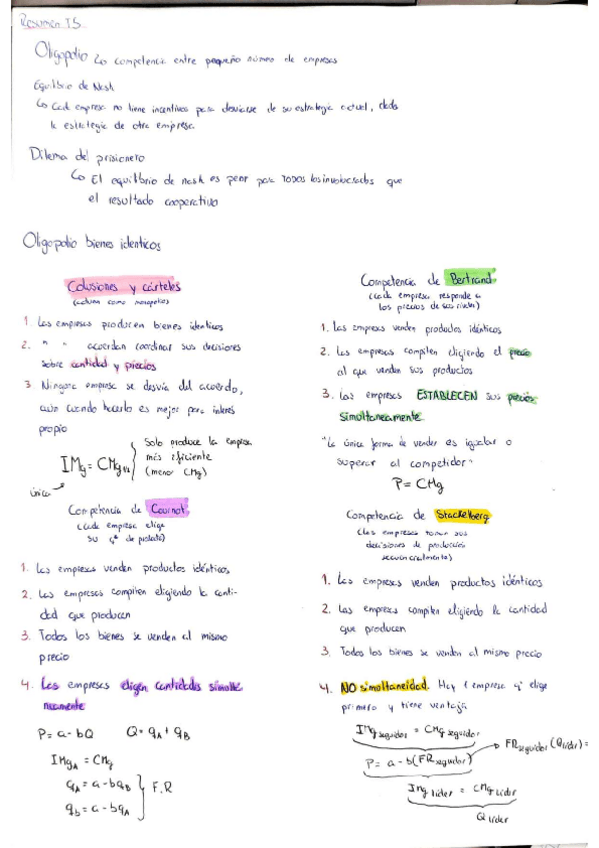 Resumen T5
Oligopolio ↳ competencia entre pequeño número de empresas
Equilibrio de Nash
↳ Cada empresa no tiene incentivos para desviarse de su estrategia actual, dada
la estrategia de otra empresa
Dilema del prisionero
↳ El equilibrio de nash es peor para TODOS los involucrados que
el resultado cooperativo
Oligopolio bienes identicos
Colusiones y cárteles
(actuan como monopolio)
1. Las empresas producen bienes identicos
2. " " acuerdan coordinar sus decisiones
sobre cantidad y precios
3 Ninguna empresa se desvia del acuerdo,
aun cuando hacerlo es mejor para interés
propio
IMg = CMg
única
Solo produce la empresa
más eficiente
(menor CMg)
Competencia de Bertrand
(cada empresa responde a
los precios de sus rivales)
1. Las empresas venden productos idénticos
2. Las empresas compiten eligiendo el precio
al que venden sus productos
3. Las empresas ESTABLECEN sus precios
simultaneamente
"La única forma de vender es igualar o
superar al competidor"
P = CMg
Competencia de Cournot
(cada empresa elige
su qᵃ de)
1. Las empresas venden productos idénticos
2. Las empresas compiten eligiendo la canti-
dad que producen
3. Todos los bienes se venden al mismo
precio
4. Las empresas eligen cantidades simultá
neamente
P = a - bQ Q = qA + qB
IMgA = CMg
qA = a - bqB
qb = a - bqA
F.R
Competencia de Stackelberg
(las empresas toman sus
decisiones de producción
secuencialmente)
1. Las empresas venden productos idénticos
2. Las empresas compiten eligiendo la cantidad
que producen
3. Todos los bienes se venden al mismo precio
4. NO simultaneidad. Hay 1 empresa q' elige
primero y tiene ventaja
IMg seguidor = CMg seguidor
P = a - b(FR seguidor) → FR seguidor (Q líder) =
Img líder = CMg líder
Q líder